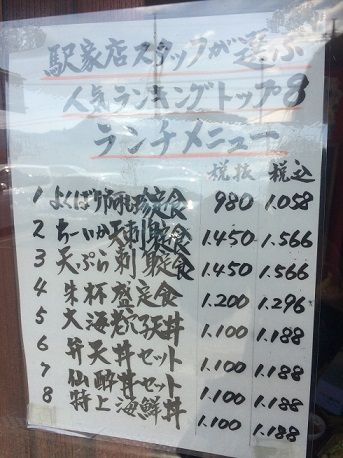 駅家店スタッフが選ぶ
人気ランキングトップ8
ランチメニュー
税抜 税込
1 よくばり阿も珍定食 980 1.058
2 ちーいか天刺身定食 1.450 1.566
3 天ぷら刺身定食 1.450 1.566
4 朱杯盛定食 1.200 1.296
5 大海老穴子天丼 1.100 1.188
6 弁天丼セット 1.100 1.188
7 仙酔丼セット 1.100 1.188
8 特上海鮮丼 1.100 1.188